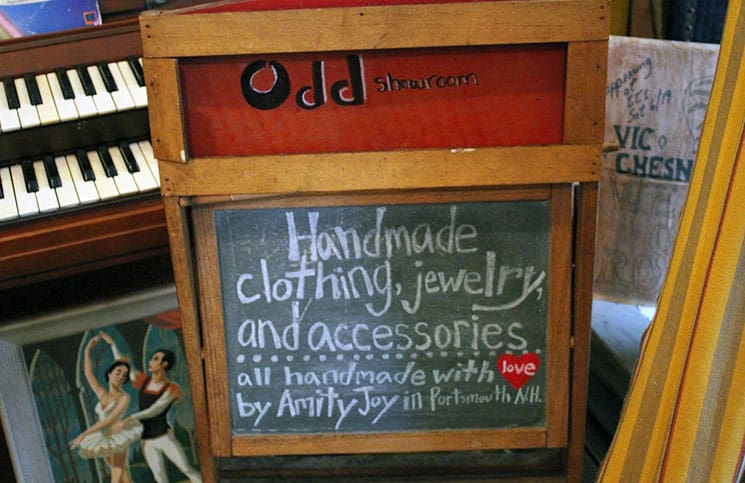 Odd showroom
Handmade
clothing, jewelry,
and accessories
all handmade with love
by Amity Joy in Portsmouth N.H.
Appearing
at
Sat 6/19
VIC
CHESN